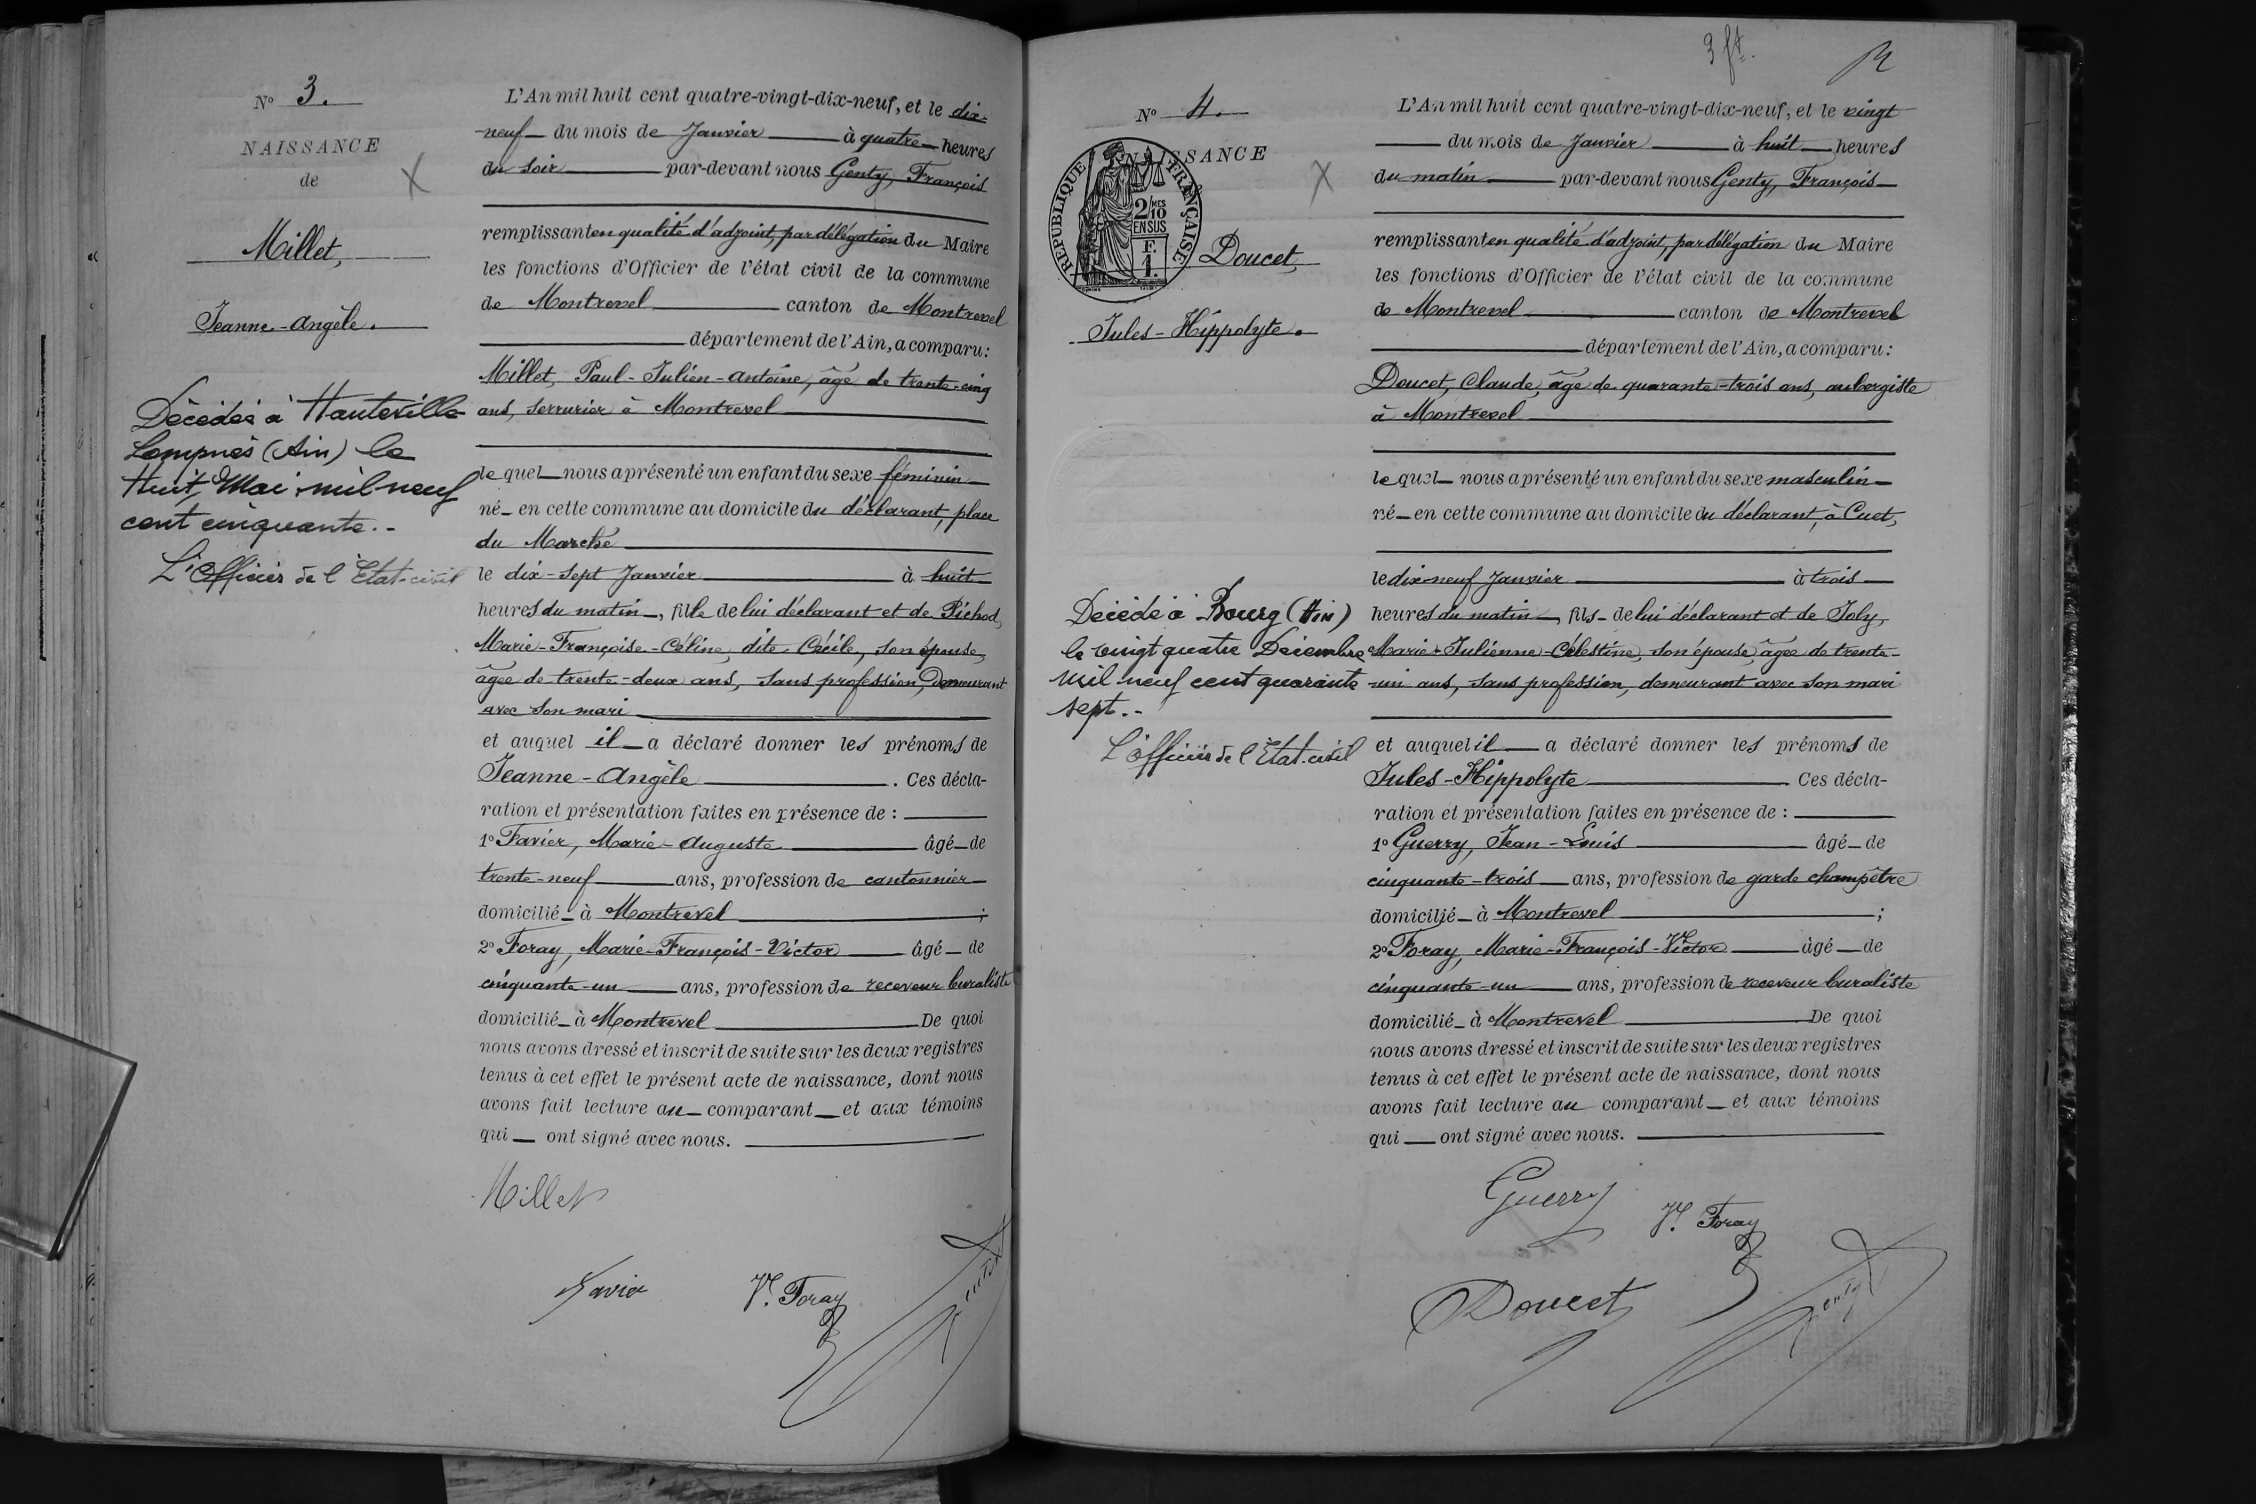 Nº 3.
NAISSANCE
de
Millet,
Jeanne-Angèle.
Décédée à Hauteville
Lompnès (Ain) le
Huit Mai mil neuf
cent cinquante.-
L'Officier de l'Etat-civil
L'An mil huit cent quatre-vingt-dix-neuf, et le dix-
neuf du mois de Janvier à quatre heures
du soir par-devant nous Genty, François
remplissant en qualité d'adjoint, par délégation du Maire
les fonctions d'Officier de l'état civil de la commune
de Montrevel canton de Montrevel
département de l'Ain, a comparu:
Millet, Paul-Julien-Antoine, âgé de trente-cinq
ans, serrurier à Montrevel
lequel nous a présenté un enfant du sexe féminin
né en cette commune au domicile du déclarant, place
du Marché
le dix-sept Janvier à huit
heures du matin, fille de lui déclarant et de Pichod,
Marie-Françoise-Céline, dite Cécile, son épouse,
âgée de trente-deux ans, sans profession, demeurant
avec son mari
et auquel il a déclaré donner les prénoms de
Jeanne-Angèle. Ces décla-
ration et présentation faites en présence de :
1º Favier, Marie-Auguste âgé de
trente-neuf ans, profession de cantonnier
domicilié à Montrevel ;
2º Foray, Marie-François-Victor âgé de
cinquante-un ans, profession de receveur buraliste
domicilié à Montrevel De quoi
nous avons dressé et inscrit de suite sur les deux registres
tenus à cet effet le présent acte de naissance, dont nous
avons fait lecture au comparant et aux témoins
qui ont signé avec nous.
Millet
Favier
Vr. Foray
Genty
3 ft.
Nº 4.
NAISSANCE
REPUBLIQUE FRANÇAISE
2/10 MES
EN SUS
F.
1.
Doucet,
Jules-Hippolyte.
Décédé à Bourg (Ain)
le vingt quatre Décembre
mil neuf cent quarante
sept.-
L'Officier de l'Etat-civil
L'An mil huit cent quatre-vingt-dix-neuf, et le vingt
du mois de Janvier à huit heures
du matin par-devant nous Genty, François
remplissant en qualité d'adjoint, par délégation du Maire
les fonctions d'Officier de l'état civil de la commune
de Montrevel canton de Montrevel
département de l'Ain, a comparu:
Doucet, Claude, âgé de quarante-trois ans, aubergiste
à Montrevel
lequel nous a présenté un enfant du sexe masculin
né en cette commune au domicile du déclarant, à Cuet,
le dix-neuf Janvier à trois
heures du matin, fils de lui déclarant et de Joly,
Marie-Julienne-Célestine, son épouse, âgée de trente-
un ans, sans profession, demeurant avec son mari
et auquel il a déclaré donner les prénoms de
Jules-Hippolyte Ces décla-
ration et présentation faites en présence de :
1º Guerry, Jean-Louis âgé de
cinquante-trois ans, profession de garde champêtre
domicilié à Montrevel ;
2º Foray, Marie-François-Victor âgé de
cinquante-un ans, profession de receveur buraliste
domicilié à Montrevel De quoi
nous avons dressé et inscrit de suite sur les deux registres
tenus à cet effet le présent acte de naissance, dont nous
avons fait lecture au comparant et aux témoins
qui ont signé avec nous.
Guerry
Vr. Foray
Doucet
Genty